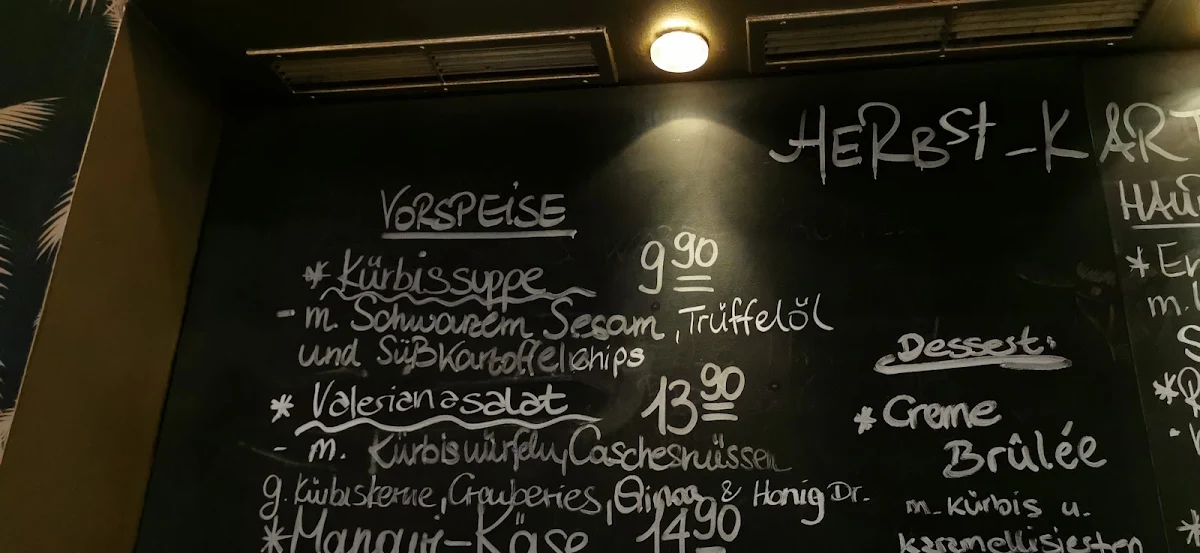 HERBST-KART
VORSPEISE
* Kürbissuppe 9 90
- m. Schwarzem Sesam, Trüffelöl
und Süßkartoffelchips
* Valerianasalat 13 90
- m. Kürbiswürfeln, Caschesnüssen
g. Kürbiskerne, Cranberries, Qinoa & Honig Dr.
* Manouri-Käse 14 90
Dessert:
* Creme
Brûlée
m. Kürbis u.
karamellisierten
HAU
* Er
m.